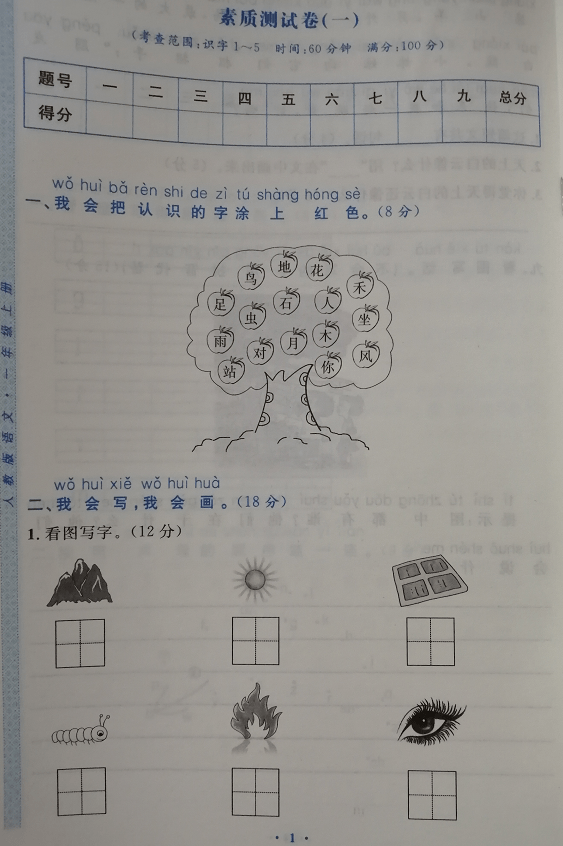 素质测试卷(一)
(考查范围:识字1~5 时间:60分钟 满分:100分)
题号 一 二 三 四 五 六 七 八 九 总分
得分
wǒ huì bǎ rèn shi de zì tú shàng hóng sè
一、我会把认识的字涂上红色。(8分)
鸟 地 花 禾
足 虫 石 人 坐
雨 对 月 木 风
站 你
wǒ huì xiě wǒ huì huà
二、我会写,我会画。(18分)
1.看图写字。(12分)
·1·
人教版语文·一年级上册